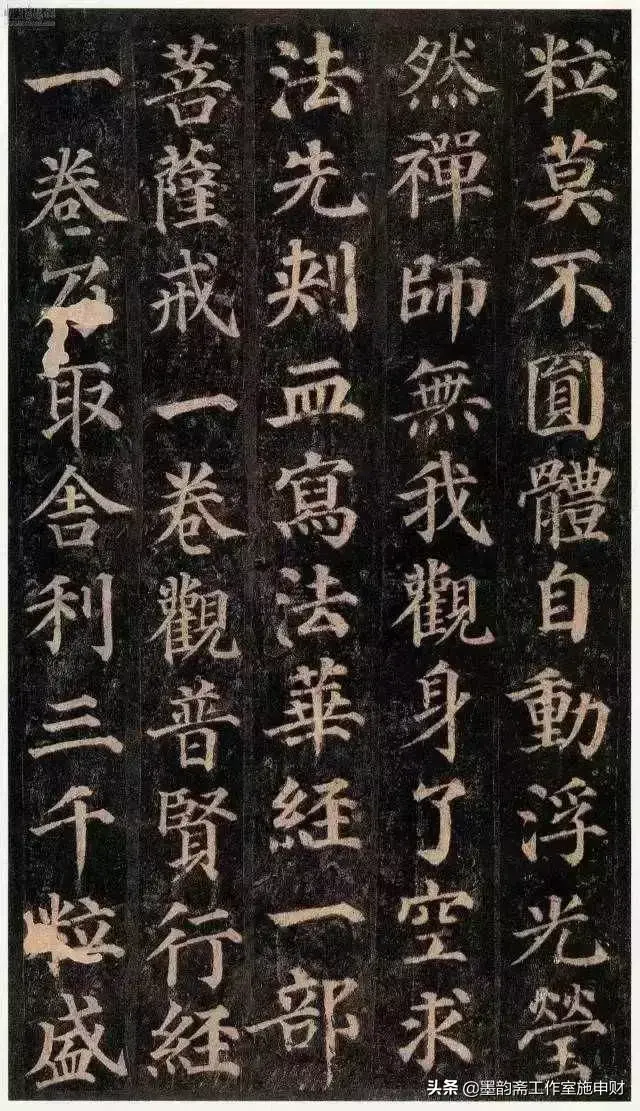 粒莫不圎體自動浮光瑩
然禪師無我觀身了空求
法先刾血寫法華経一部
菩薩戒一卷觀普賢行経
一卷乃取舍利三千粒盛
头条 @墨韵斋工作室施申财